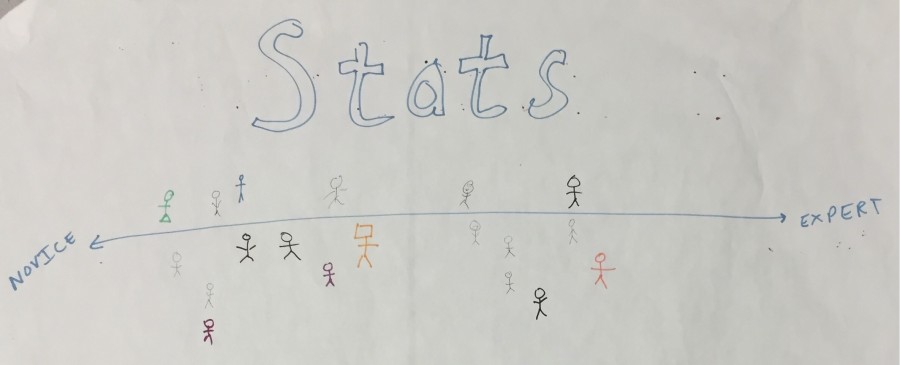 Stats
NOVICE
EXPERT